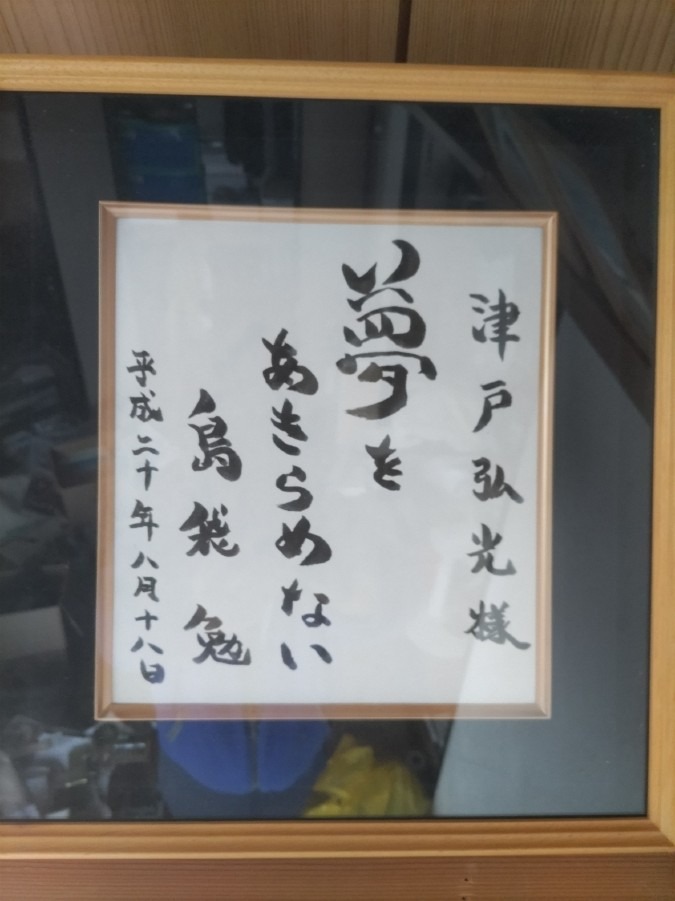 津戸弘光様
夢を
あきらめない
島袋勉
平成二十年八月十八日